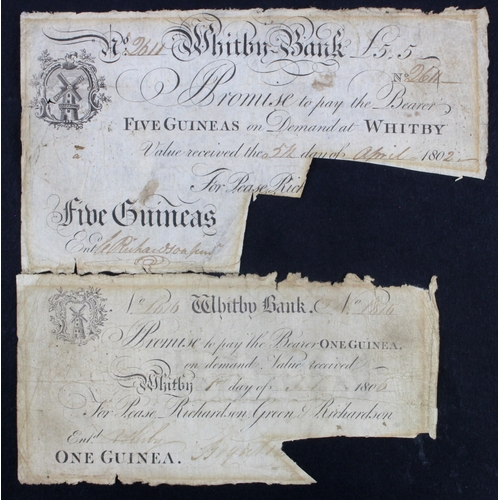 No. 2614 Whitby Bank £5,5
No 2614
Promise to pay the Bearer
FIVE GUINEAS on Demand at WHITBY
Value received the 5th day of April 1802
For Pease Rich
Five Guineas
Entd. Richardson junr
No Whitby Bank. No
Promise to pay the Bearer ONE GUINEA.
on demand Value received
Whitby 1st day of 1806
For Pease, Richardson, Green & Richardson
Entd.
ONE GUINEA.